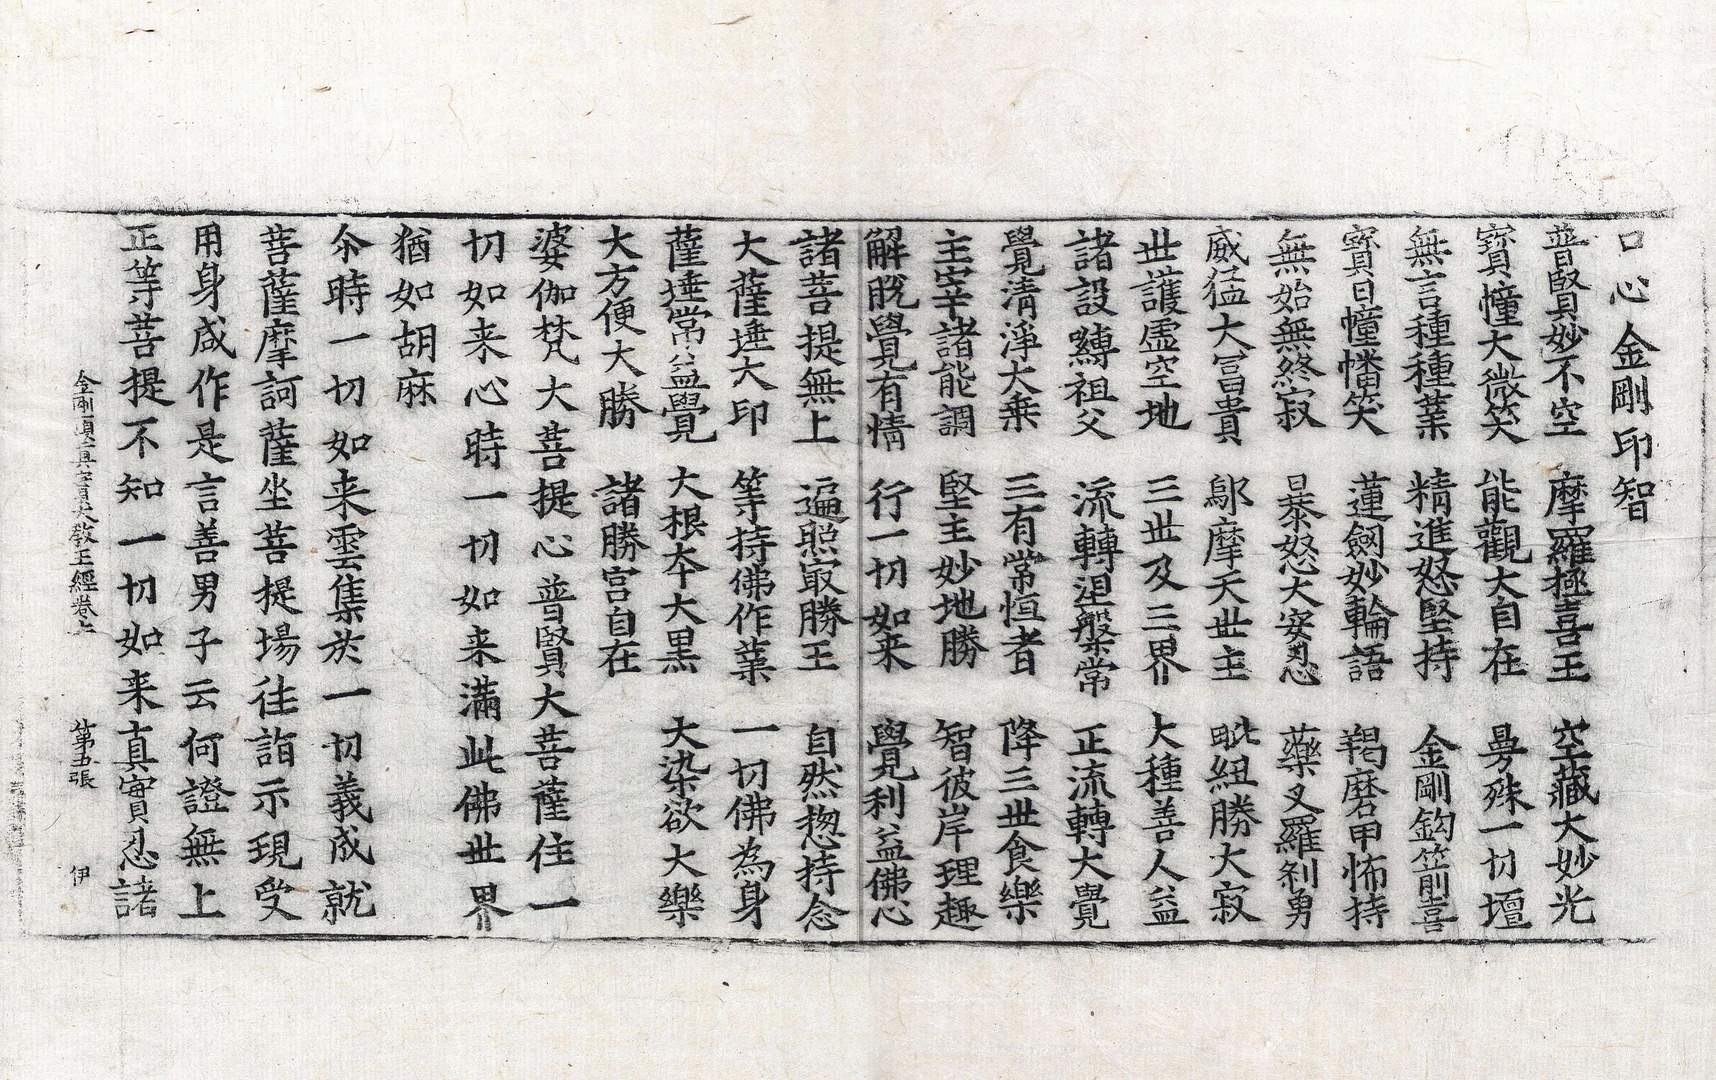 口心金剛印智
普賢妙不空 摩羅極喜王 空藏大妙光
寶幢大微笑 能觀大自在 曼殊一切壇
無言種種業 精進怒堅持 金剛鈎箭喜
寶日幢幡笑 蓮劒妙輪語 羯磨甲怖持
無始無終寂 暴怒大安忍 藥叉羅剎勇
威猛大冨貴 鄔摩天世主 毗紐勝大寂
世護虛空地 三世及三界 大種善人益
諸設縛祖父 流轉涅槃常 正流轉大覺
覺清淨大乗 三有常恒者 降三世食樂
主宰諸能調 堅主妙地勝 智彼岸理趣
解脫覺有情 行一切如来 覺利益佛心
諸菩提無上 遍照㝡勝王 自然揔持念
大薩埵大印 等持佛作業 一切佛為身
薩埵常益覺 大根夲大黒 大染欲大樂
大方便大勝 諸勝宫自在
婆伽梵大菩提心普賢大菩薩住一
切如来心時一切如来滿此佛世界
猶如胡麻
尒時一切如来雲集於一切義成就
菩薩摩訶薩坐菩提場徃詣示現受
用身咸作是言善男子云何證無上
正等菩提不知一切如来真實忍諸
金剛頂真實大教王經卷上 第五張 伊